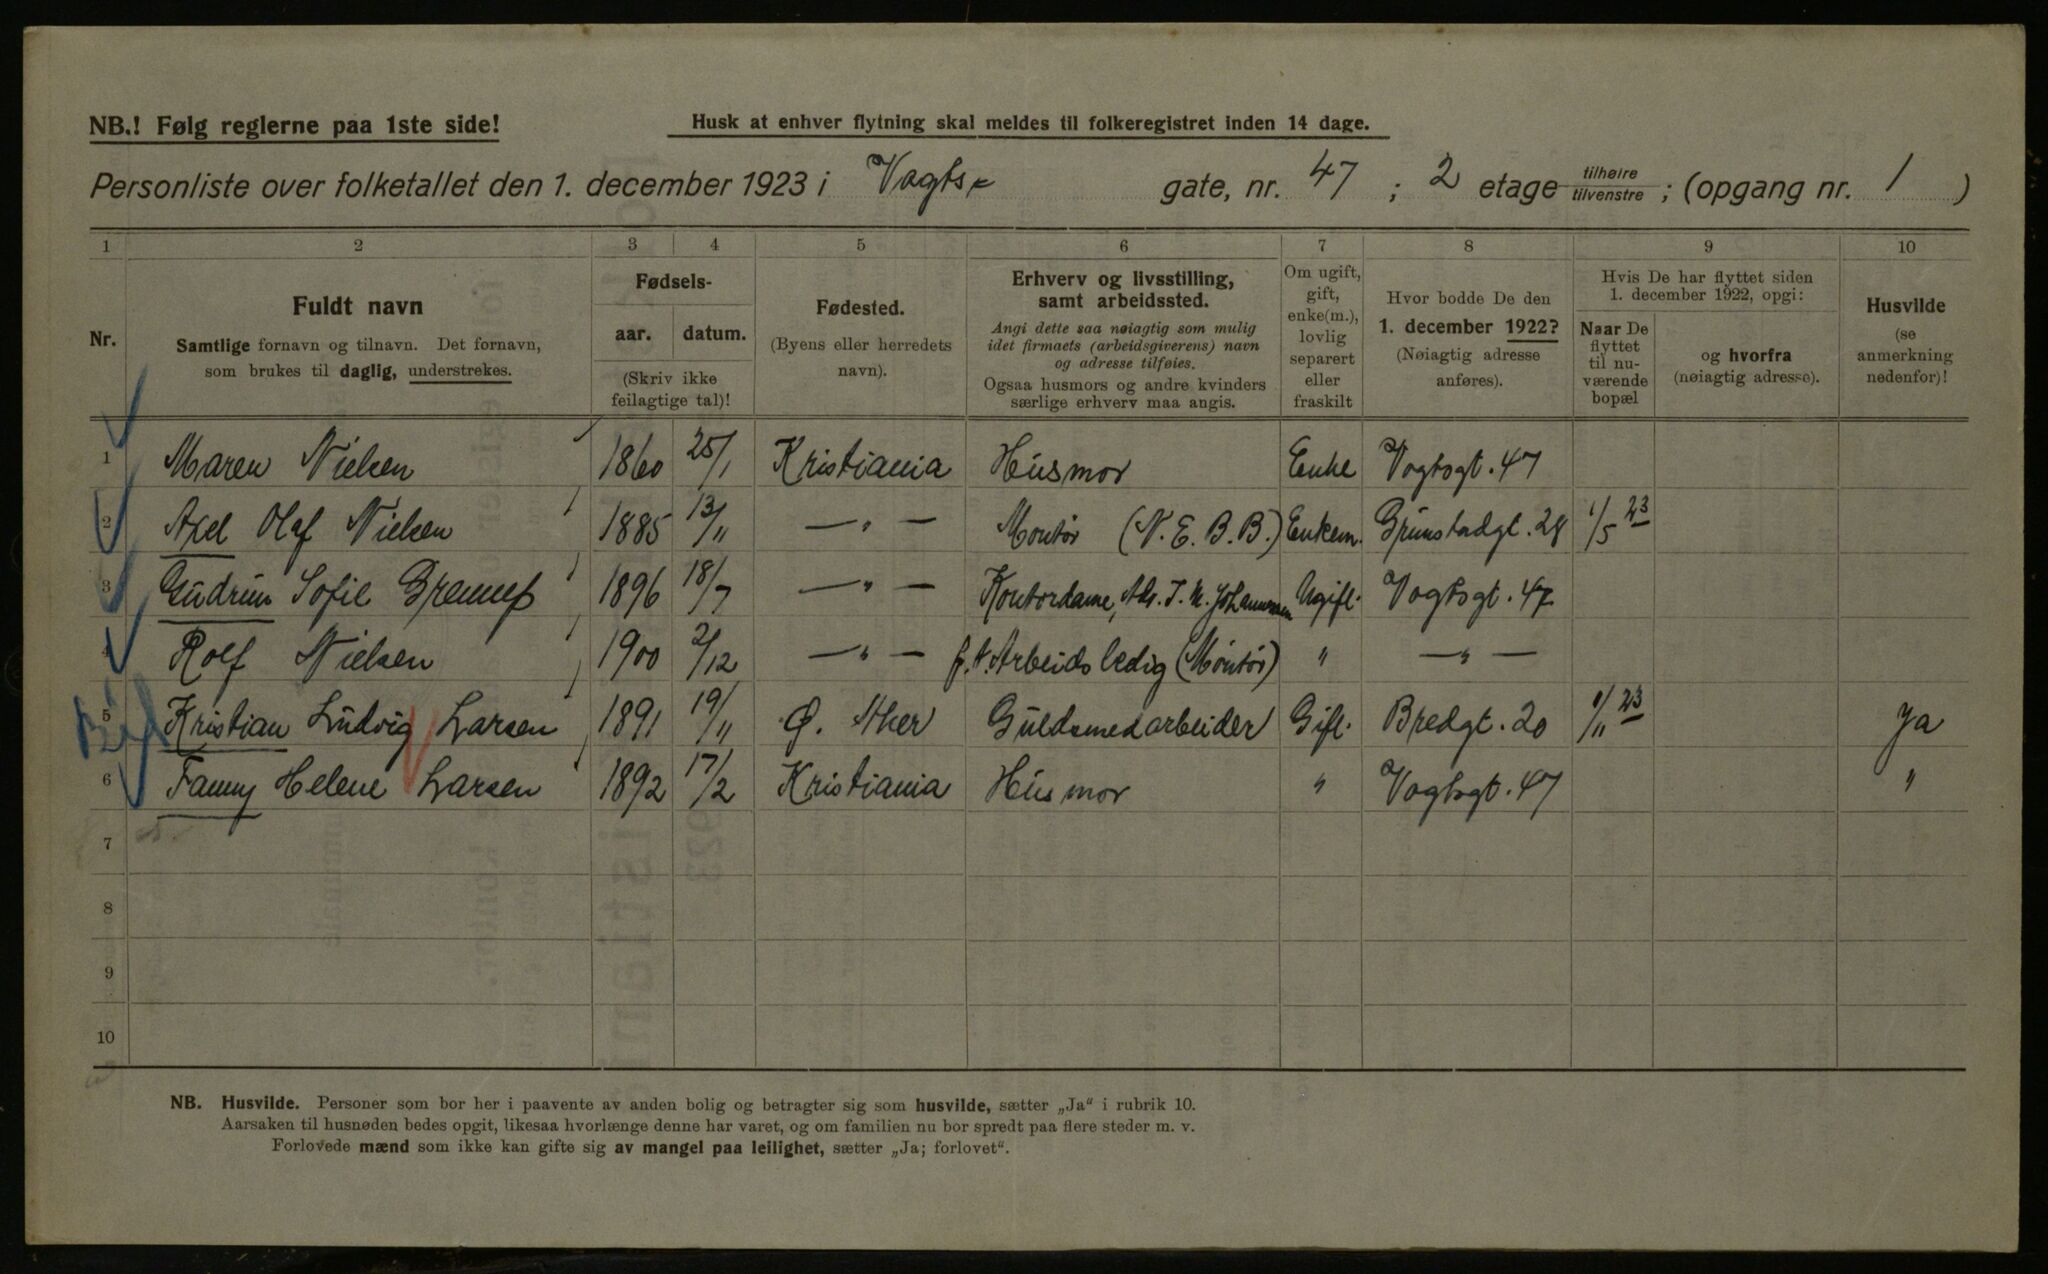 NB.! Følg reglerne paa 1ste side!
Husk at enhver flytning skal meldes til folkeregistret inden 14 dage.
Personliste over folketallet den 1. december 1923 i Vogts- gate, nr. 47 ; 2 etage tilhøire tilvenstre ; (opgang nr. 1 )
1 2 3 4 5 6 7 8 9 10
Nr.
Fuldt navn
Samtlige fornavn og tilnavn. Det fornavn,
som brukes til daglig, understrekes.
Fødsels-
aar. datum.
(Skriv ikke
feilagtige tal)!
Fødested.
(Byens eller herredets
navn).
Erhverv og livsstilling,
samt arbeidssted.
Angi dette saa nøiagtig som mulig
idet firmaets (arbeidsgiverens) navn
og adresse tilføies.
Ogsaa husmors og andre kvinders
særlige erhverv maa angis.
Om ugift,
gift,
enke(m.),
lovlig
separert
eller
fraskilt
Hvor bodde De den
1. december 1922?
(Nøiagtig adresse
anføres).
Hvis De har flyttet siden
1. december 1922, opgi:
Naar De
flyttet
til nu-
værende
bopæl
og hvorfra
(nøiagtig adresse).
Husvilde
(se
anmerkning
nedenfor)!
1 Maren Nielsen 1860 25/1 Kristiania Husmor Enke Vogtsgt. 47
2 Axel Olaf Nielsen 1885 13/11 — " — Montør (N. E. B. B.) Enkem. Grimstadgt. 28 1/5 23
3 Gudrun Sofie 1896 18/7 — " — Kontordame, Ugift. Vogtsgt. 47
4 Rolf Nielsen 1900 2/12 — " — f. t. Arbeidsledig (Montør) " — " —
5 Kristian Ludvig Larsen 1891 19/11 Ø. Aker Guldsmedarbeider Gift. Bredgt. 20 1/11 23 Ja
6 Fanny Helene Larsen 1892 17/2 Kristiania Husmor " Vogtsgt. 47 "
7
8
9
10
NB. Husvilde. Personer som bor her i paavente av anden bolig og betragter sig som husvilde, sætter „Ja" i rubrik 10.
Aarsaken til husnøden bedes opgit, likesaa hvorlænge denne har varet, og om familien nu bor spredt paa flere steder m. v.
Forlovede mænd som ikke kan gifte sig av mangel paa leilighet, sætter „Ja; forlovet".